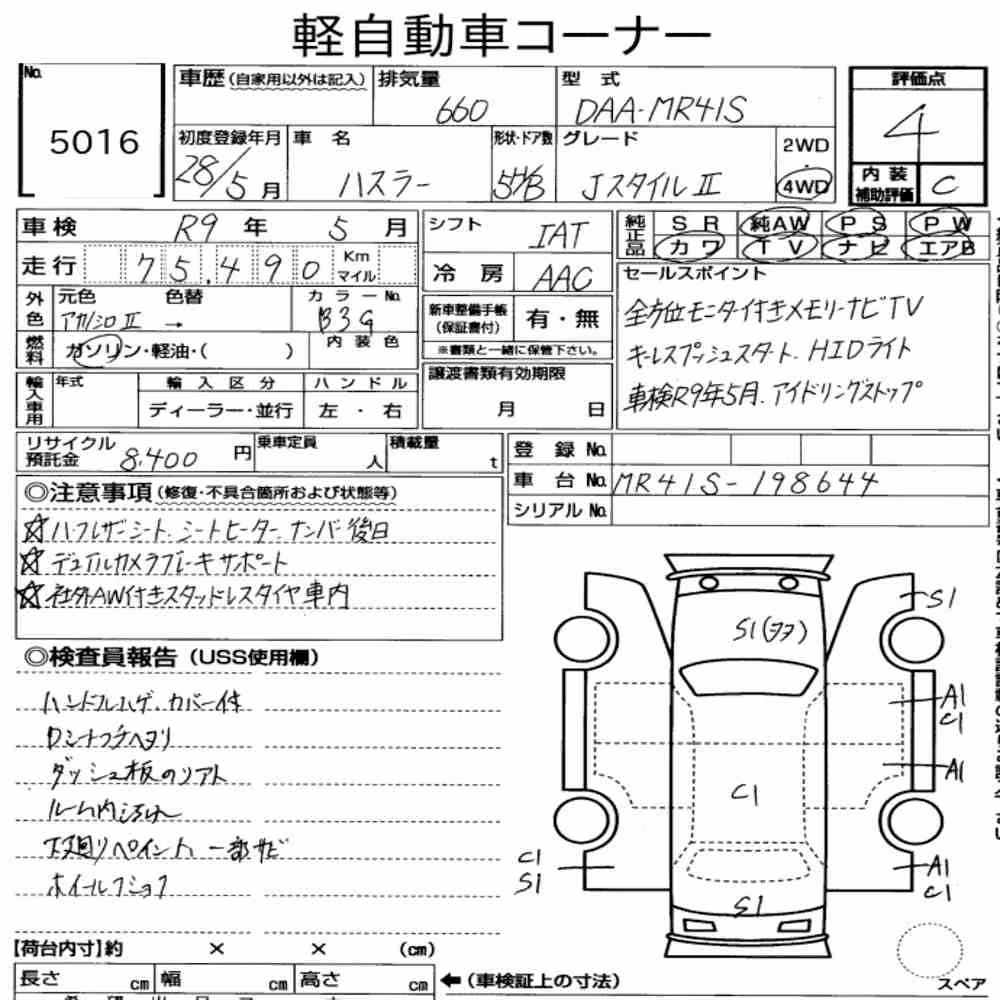 軽自動車コーナー
No. 5016
車歴 (自家用以外は記入) 排気量 660 型式 DAA-MR41S
評価点 4
初度登録年月 28/5月 車名 ハスラー 形状・ドア数 5HB グレード JスタイルⅡ 2WD 4WD
内装補助評価 C
車検 R9年 5月 シフト IAT
純正品 SR 純AW PS PW
カワ TV ナビ エアB
走行 75,490 Km マイル 冷房 AAC
セールスポイント
全方位モニタイ付きメモリーナビTV
キーレスプッシュスタート. HIDライト
車検R9年5月. アイドリングストップ
外色 元色 アカ/シロⅡ 色替 → カラーNo. B3G
内装色
燃料 ガソリン・軽油・( )
新車整備手帳 (保証書付) 有・無
※書類と一緒に保管下さい。
輸入車用 年式 輸入区分 ディーラー・並行 ハンドル 左・右
譲渡書類有効期限 月 日
リサイクル預託金 8,400円 乗車定員 人 積載量 t
登録No.
車台No. MR41S-198644
シリアルNo.
◎注意事項 (修復・不具合箇所および状態等)
☆ハーフレザーシート. シートヒーター. ナンバー後日
☆デュアルカメラブレーキサポート
☆社外AW付きスタッドレスタイヤ車内
◎検査員報告 (USS使用欄)
ハンドルハゲ. カバー付
ダッシュ板のリアト
下廻りペイント、一部サビ
S1
S1(ヲヲ)
A1
C1
A1
C1
C1
S1
A1
C1
S1
【荷台内寸】約 × × (cm)
長さ cm 幅 cm 高さ cm
←(車検証上の寸法)
スペア